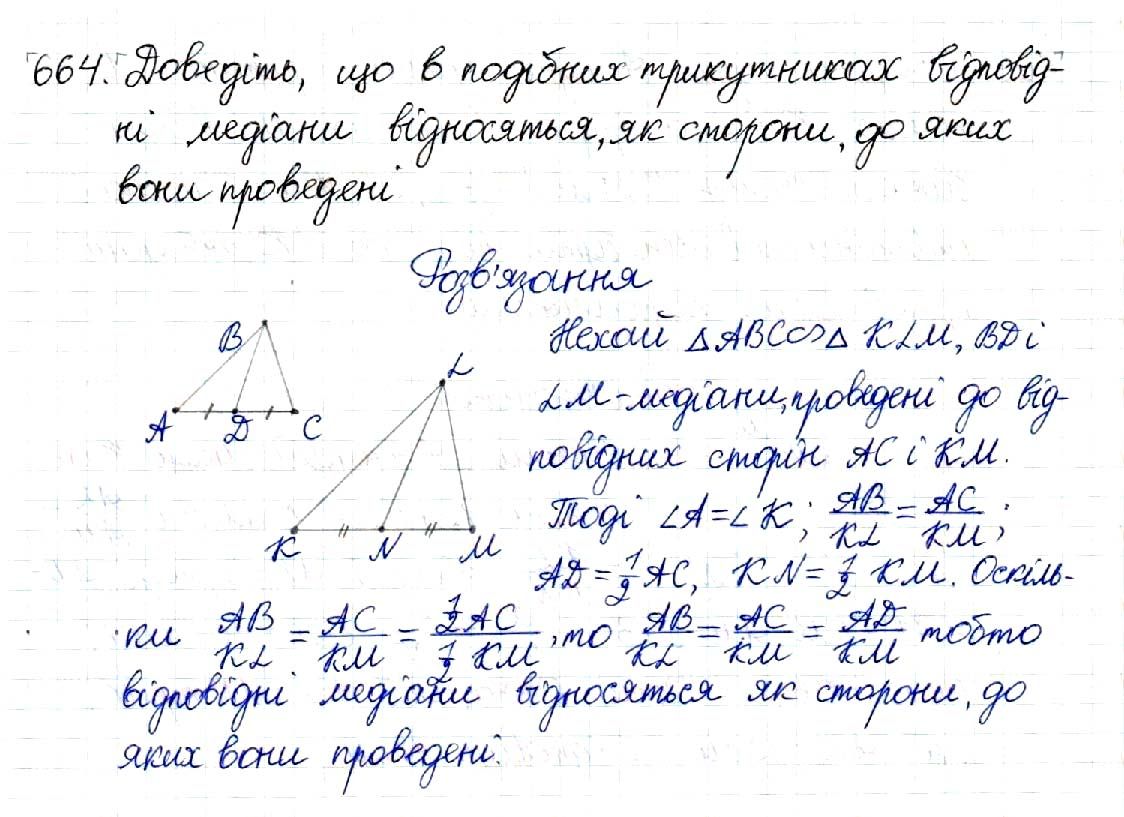 664. Доведіть, що в подібних трикутниках відповід-
ні медіани відносяться, як сторони, до яких
вони проведені
Розв'язання
Нехай △ABC∽△KLM, BD і
LM - медіани, проведені до від-
повідних сторін AC і KM.
Тоді ∠A=∠K; AB/KL = AC/KM;
AD = 1/2 AC, KN = 1/2 KM. Оскіль-
ки AB/KL = AC/KM = 1/2 AC / 1/2 KM, то AB/KL = AC/KM = AD/KM тобто
відповідні медіани відносяться як сторони, до
яких вони проведені.
B
A
D
C
L
K
N
M